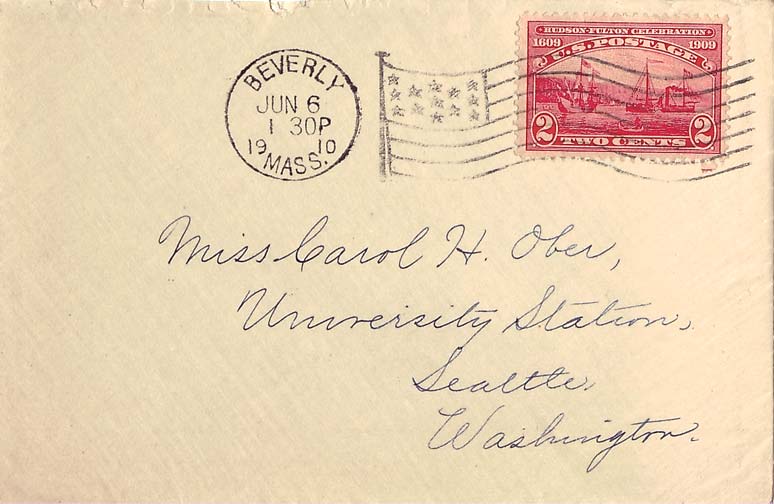 BEVERLY
JUN 6
1 30P
19 10
MASS.
HUDSON-FULTON CELEBRATION
1609 1909
U.S. POSTAGE
2 2
TWO CENTS
Miss Carol H. Ober,
University Station,
Seattle,
Washington.